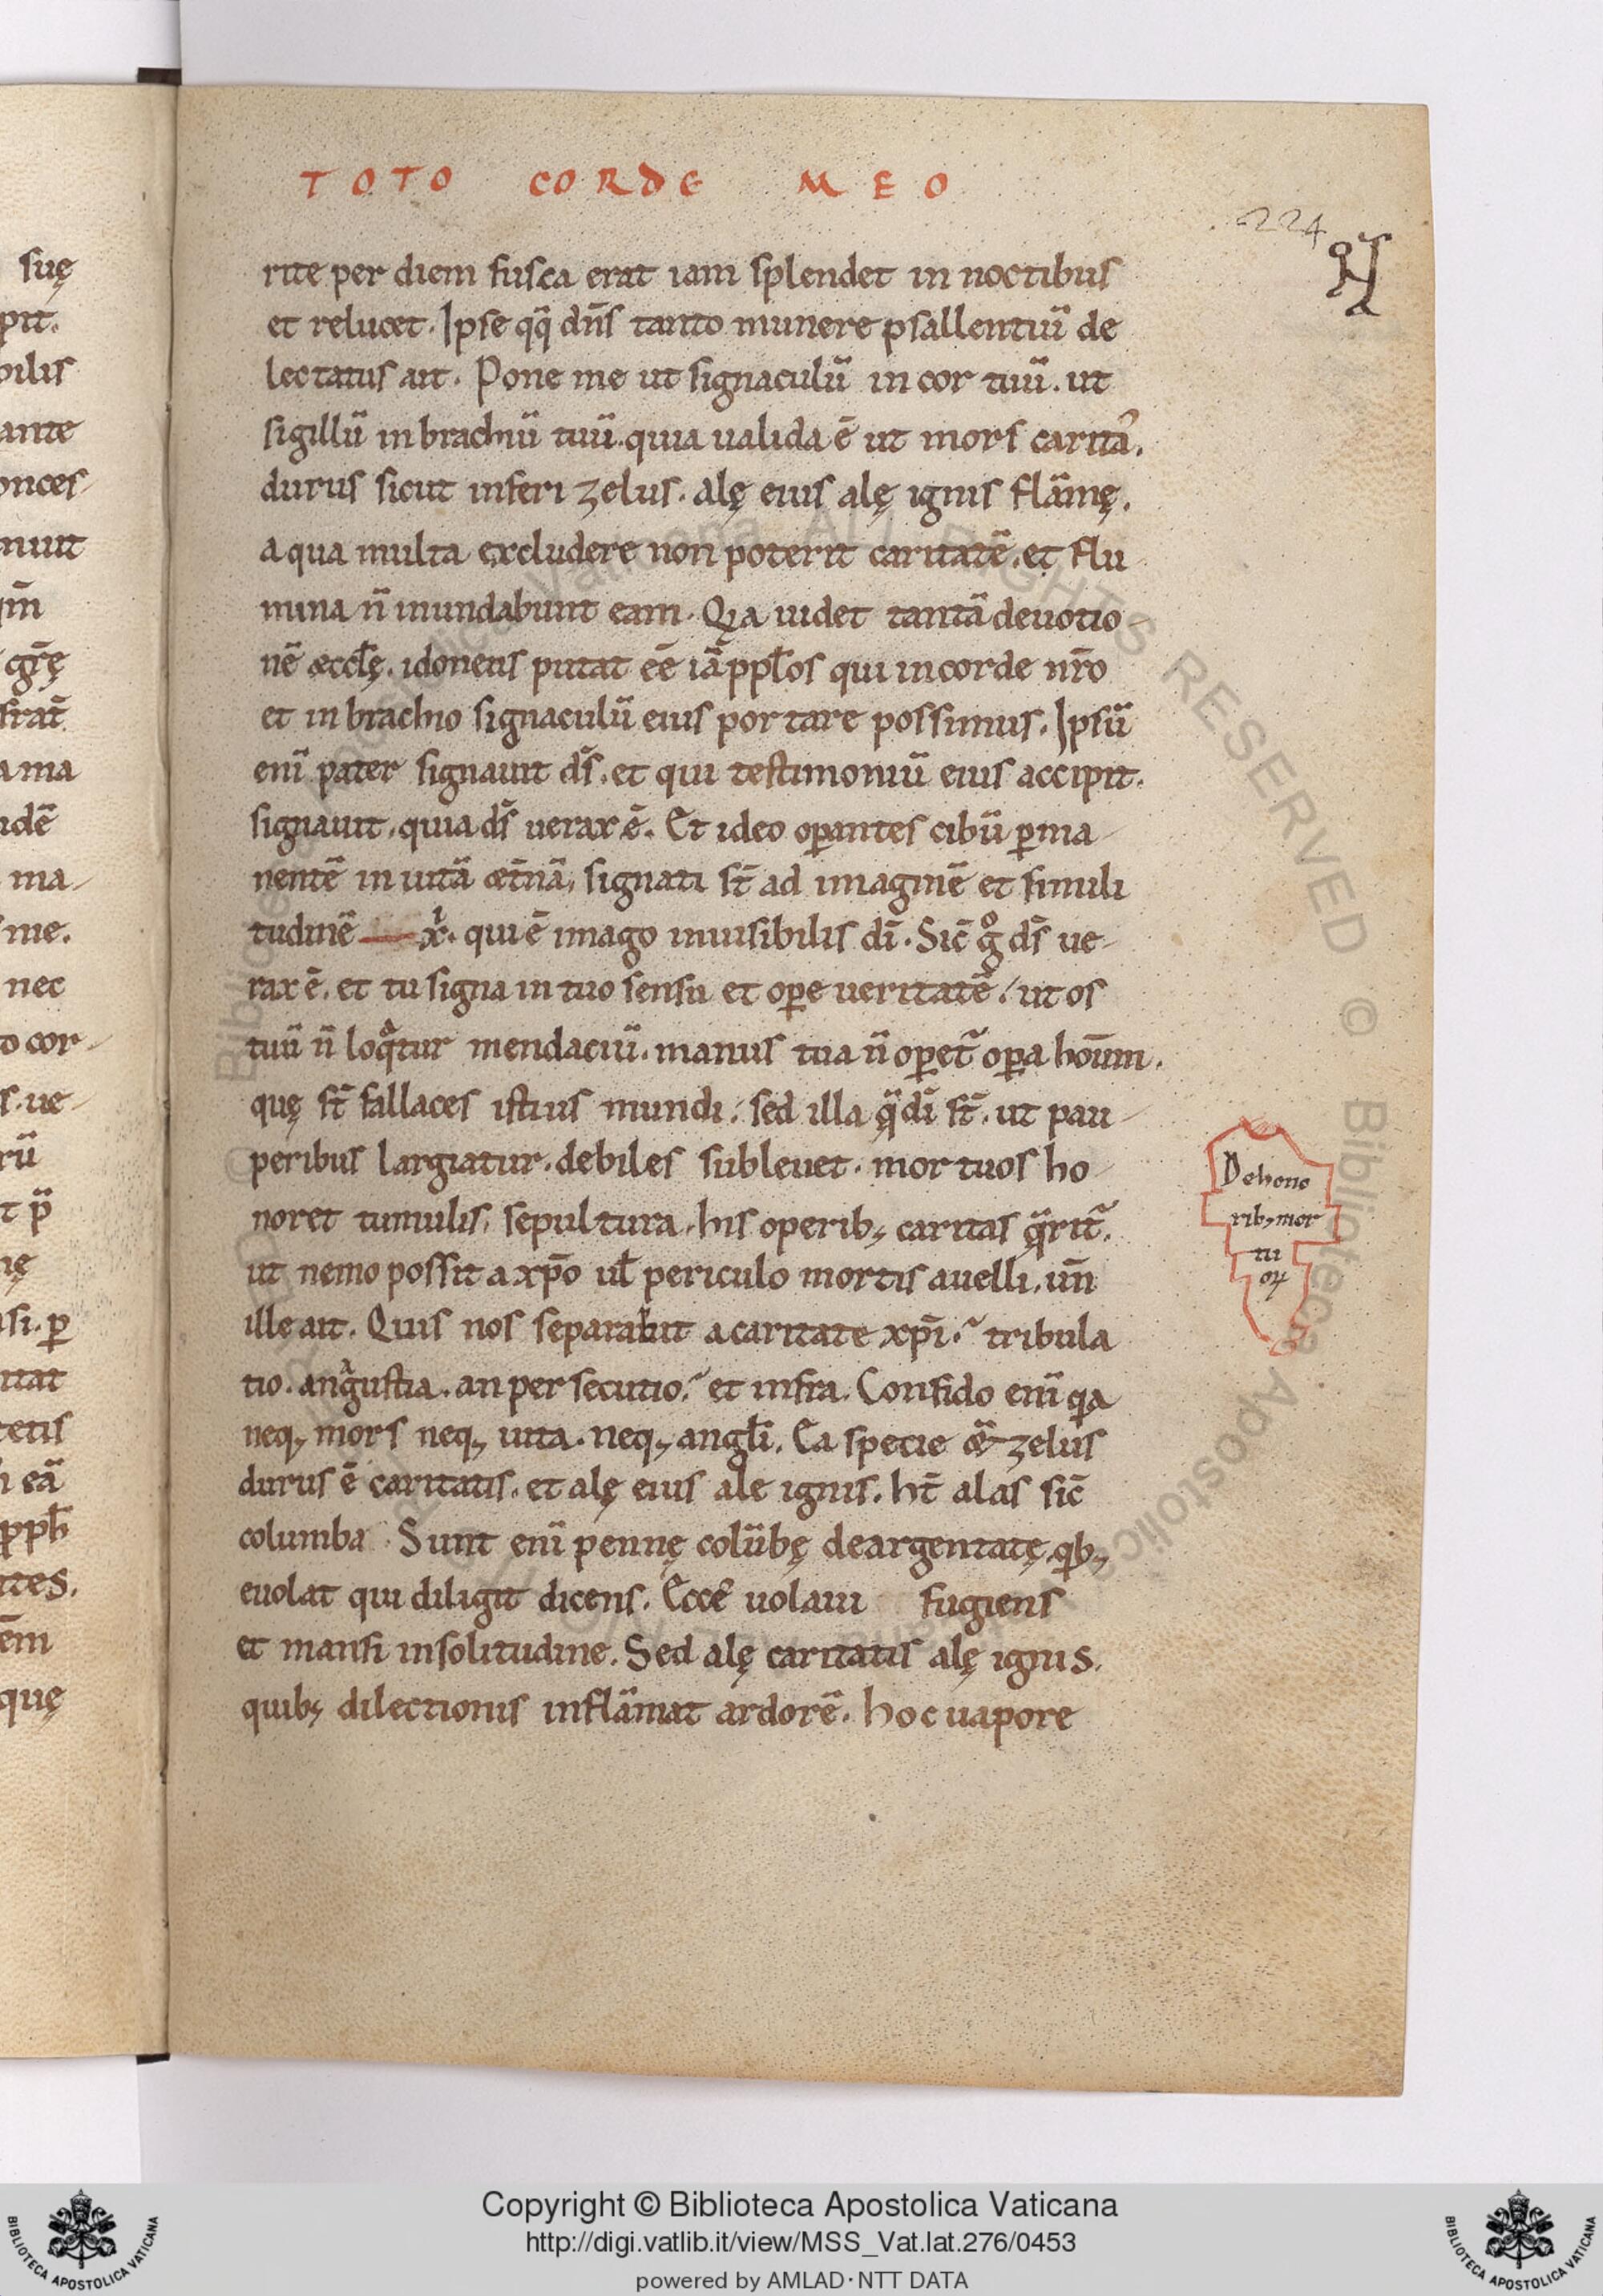 TOTO CORDE MEO
224
rite per diem fusca erat iam splendet in noctibus
et relucet. Ipse qq̃ dñs tanto munere psallentiũ de
lectatus ait. Pone me ut signaculũ in cor tuũ. ut
sigillũ in brachiũ tuũ. quia ualida ẽ ut mors carita᾽.
durus sicut inferi zelus. alę eius alę ignis flãmę.
aqua multa excludere non poterit caritatẽ. et flu
mina ñ inundabunt eam. Qia uidet tantã deuotio-
nẽ æccl̃ę. idoneus putat eẽ iã ppl̃os qui in corde nr̃o
et in brachio signaculũ eius portare possimus. Ipsũ
enĩ pater signauit ds̃. et qui testimoniũ eius accipit.
signauit. quia ds̃ uerax ẽ. Et ideo oꝑantes cibũ ꝑma-
nentẽ in uitã æt̃nã, signati st̃ ad imaginẽ et simili
tudinẽ xi. qui ẽ imago inuisibilis dĩ. Sic̃ gͦ ds̃ ue-
rax ẽ. et tu signa in tuo sensu et oꝑe ueritatẽ. ut os
tuũ ñ loqͣtur mendaciũ. manus tua ñ oꝑet᷑ oꝑa houm̃.
quę st̃ fallaces istius mundi. sed illa q̃ dĩ st̃. ut pau-
peribus largiatur. debiles subleuet. mortuos ho-
noret tumulis, sepultura. his operibꝫ caritas q̃rit᷑.
ut nemo possit a xp̃o ul̃ periculo mortis auelli. uñ
ille ait. Quis nos separabit a caritate xpĩ. tribula
tio. angustia. an persecutio. et infra. Confido enĩ qa
neqꝫ mors neqꝫ uita. neqꝫ angl̃i. Ea specie & zelus
durus ẽ caritatis. et alę eius ale ignis. ht̃ alas sic̃
columba. Sunt enĩ pennę colũbę deargentatę. qbꝫ
euolat qui diligit dicens. Ecce uolaui fugiens
et mansi in solitudine. Sed alę caritatis alę ignis.
quibꝫ dilectionis inflãmat ardorẽ. hoc uapore
De hono
ribꝫ mor
tu
oꝝ
suę
pit.
bilis
ante
onces-
nuit
qm̃
gr̃ę
frat̃
ama
idẽ
ma-
me.
nec
o cor-
s. ue-
rũ
t p̃
nę
si. ꝑ
itat
tetis
eã
pph̃
ites.
em̃
quę
Copyright © Biblioteca Apostolica Vaticana
http://digi.vatlib.it/view/MSS_Vat.lat.276/0453
powered by AMLAD·NTT DATA
BIBLIOTECA APOSTOLICA VATICANA
BIBLIOTECA APOSTOLICA VATICANA